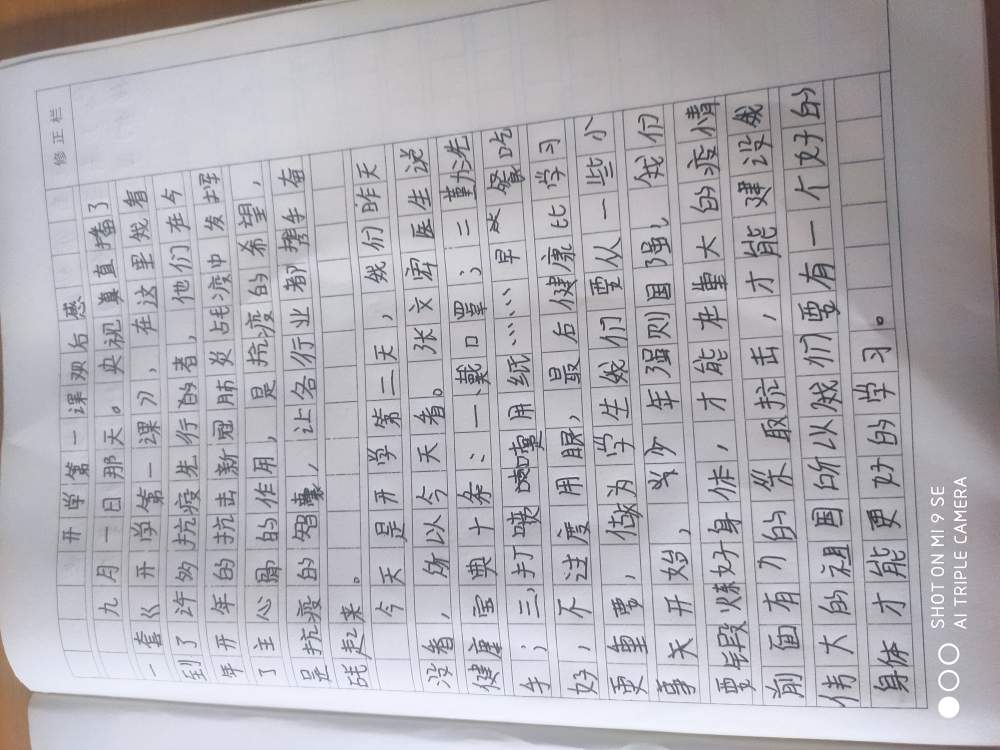 修正栏
开学第一课观后感
九月一日那天。央视真直播了
一套《开学第一课》，在这里我看
到了许多抗疫先行的者，他们在今
年开年的抗击新冠肺炎战疫中发挥
了主心骨的作用，是抗疫的希望，
是抗疫的智囊，让各行业都携手奋
战起来。
今天是开学第二天，我们昨天
没看，所以今天看。张文宏医生说
健康宝典十条：一、戴口罩；二勤办洗
手；三、打喷嚏用纸……早餐吃
好，不过度用眼，最后健康比学习
要重要，做为学生我们要从一些小
事天开始，少年强则国强，我们
要锻炼好身体，才能在重大的疫情
前面有力的采取抗击，才能建设成
伟大的祖国所以我们要有一个好的
身体才能更好的学习。
SHOT ON MI 9 SE
AI TRIPLE CAMERA